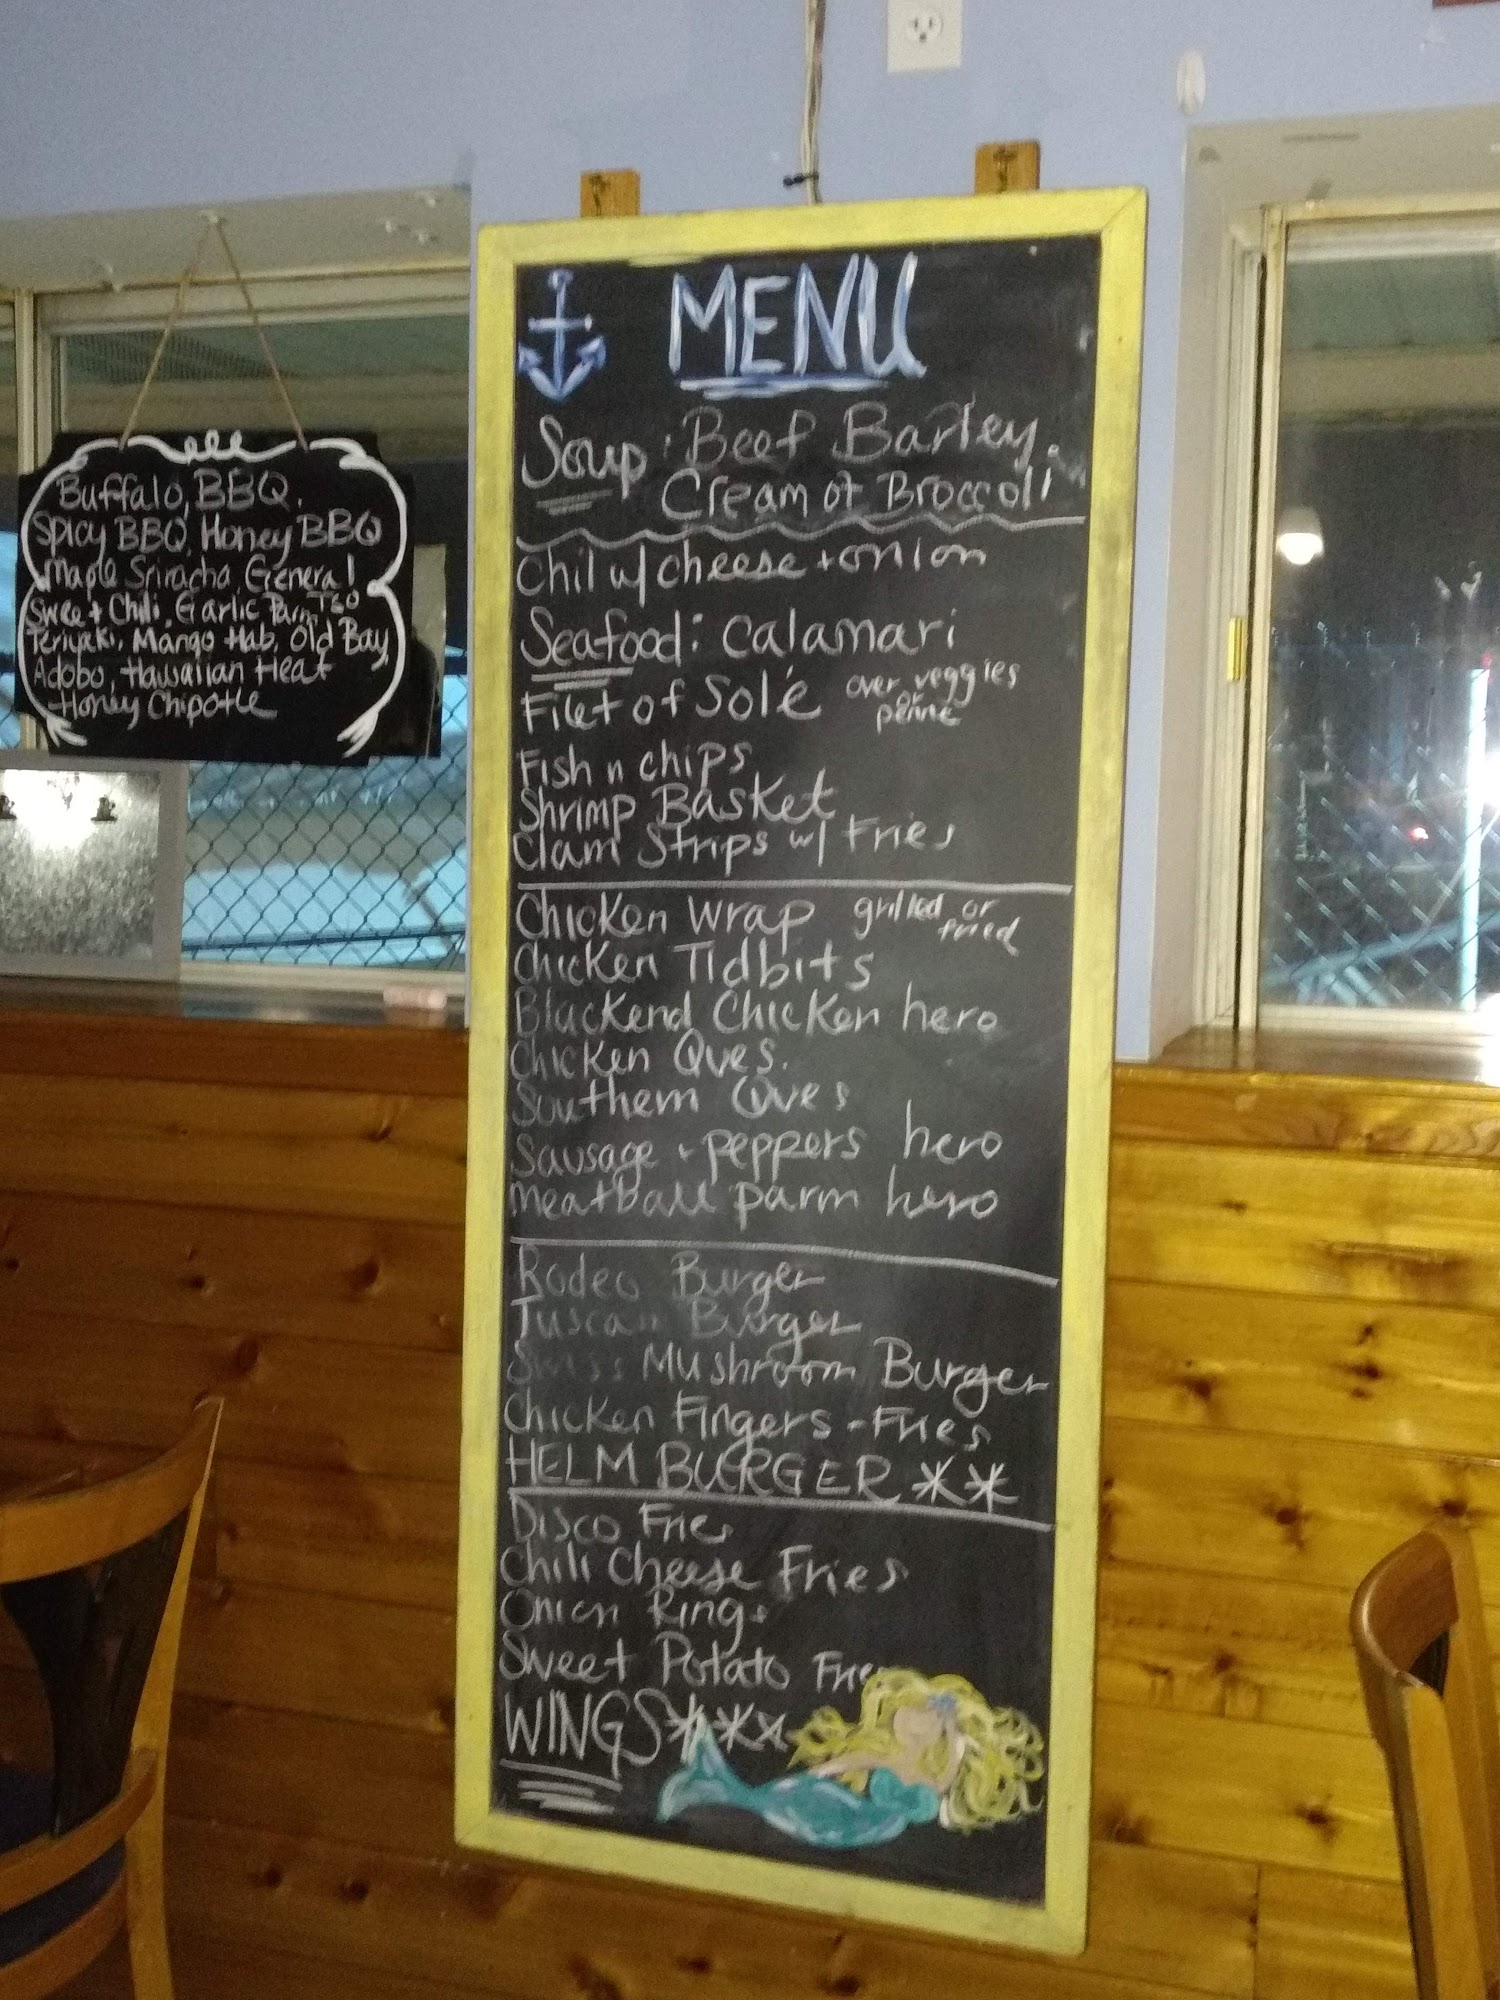 Buffalo, BBQ,
Spicy BBQ, Honey BBQ
Maple Sriracha, General
Sweet Chili, Garlic Parm, TSO
Teriyaki, Mango Hab, Old Bay,
Adobo, Hawaiian Heat
Honey Chipotle
MENU
Soup: Beef Barley,
Cream of Broccoli
Chil w/ cheese + onion
Seafood: Calamari
Filet of Solé over veggies
or
penne
Fish n chips
Shrimp Basket
Clam Strips w/ Fries
Chicken Wrap grilled or
fried
Chicken Tidbits
Blackend Chicken hero
Chicken Ques.
Southern Ques
Sausage + peppers hero
Meatball parm hero
Rodeo Burger
Tuscan Burger
Swiss Mushroom Burger
Chicken Fingers - Fries
HELM BURGER **
Disco Fries
Chili Cheese Fries
Onion Rings
Sweet Potato Fries
WINGS***